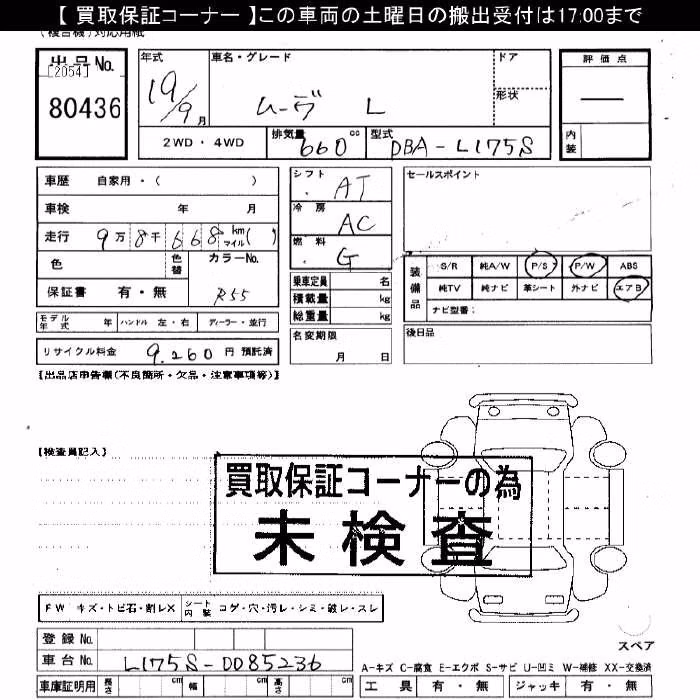 【 買取保証コーナー 】この車両の土曜日の搬出受付は17:00まで
(複合機)対応用紙
出品No.
[2054]
80436
年式
19/9月
車名・グレード
ムーヴ L
ドア
形状
評価点
—
内装
2WD・4WD
排気量
660 cc
型式
DBA-L175S
車歴 自家用・( )
車検 年 月
走行 9万8千668 km マイル( )
色 色替 カラーNo.
保証書 有・無 R55
モデル年式 年 ハンドル 左・右 ディーラー・並行
リサイクル料金 9,260円 預託済
シフト AT
冷房 AC
燃料 G
乗車定員 名
積載量 kg
総重量 kg
名変期限
月 日
セールスポイント
装備品
S/R 純A/W P/S P/W ABS
純TV 純ナビ 革シート 外ナビ エアB
ナビ型番:
後日品
【出品店申告欄(不良箇所・欠品・注意事項等)】
【検査員記入】
買取保証コーナーの為
未検査
FW キズ・トビ石・割レX シート内装 コゲ・穴・汚レ・シミ・破レ・スレ
登録No.
車台No. L175S-0085236
車庫証明用 長さ cm 幅 cm 高さ cm
スペア
A-キズ C-腐食 E-エクボ S-サビ U-凹ミ W-補修 XX-交換済
工具 有・無 ジャッキ 有・無